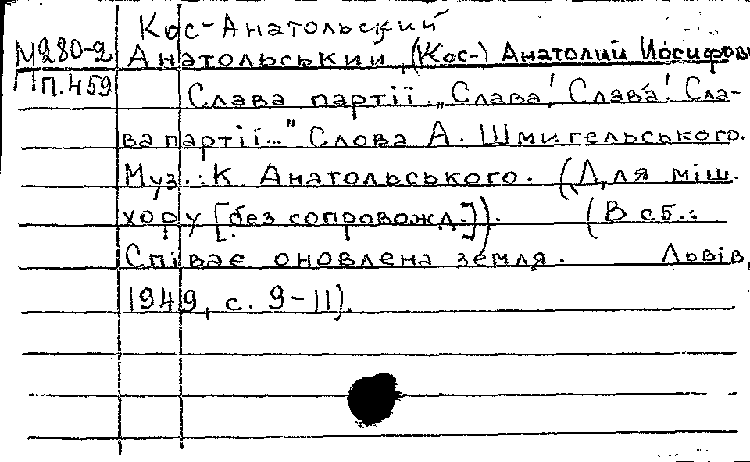 Кос-Анатольский
М280-2 Анатольський, (Кос-) Анатолий Иосифов
П.459
Слава партії. „Слава! Слава! Сла-
ва партії..." Слова А. Шмигельського.
Муз.: К. Анатольського. (Для міш.
хору [без сопровожд.]). (В сб.:
Співає оновлена земля. Львів,
1949, с. 9-11).